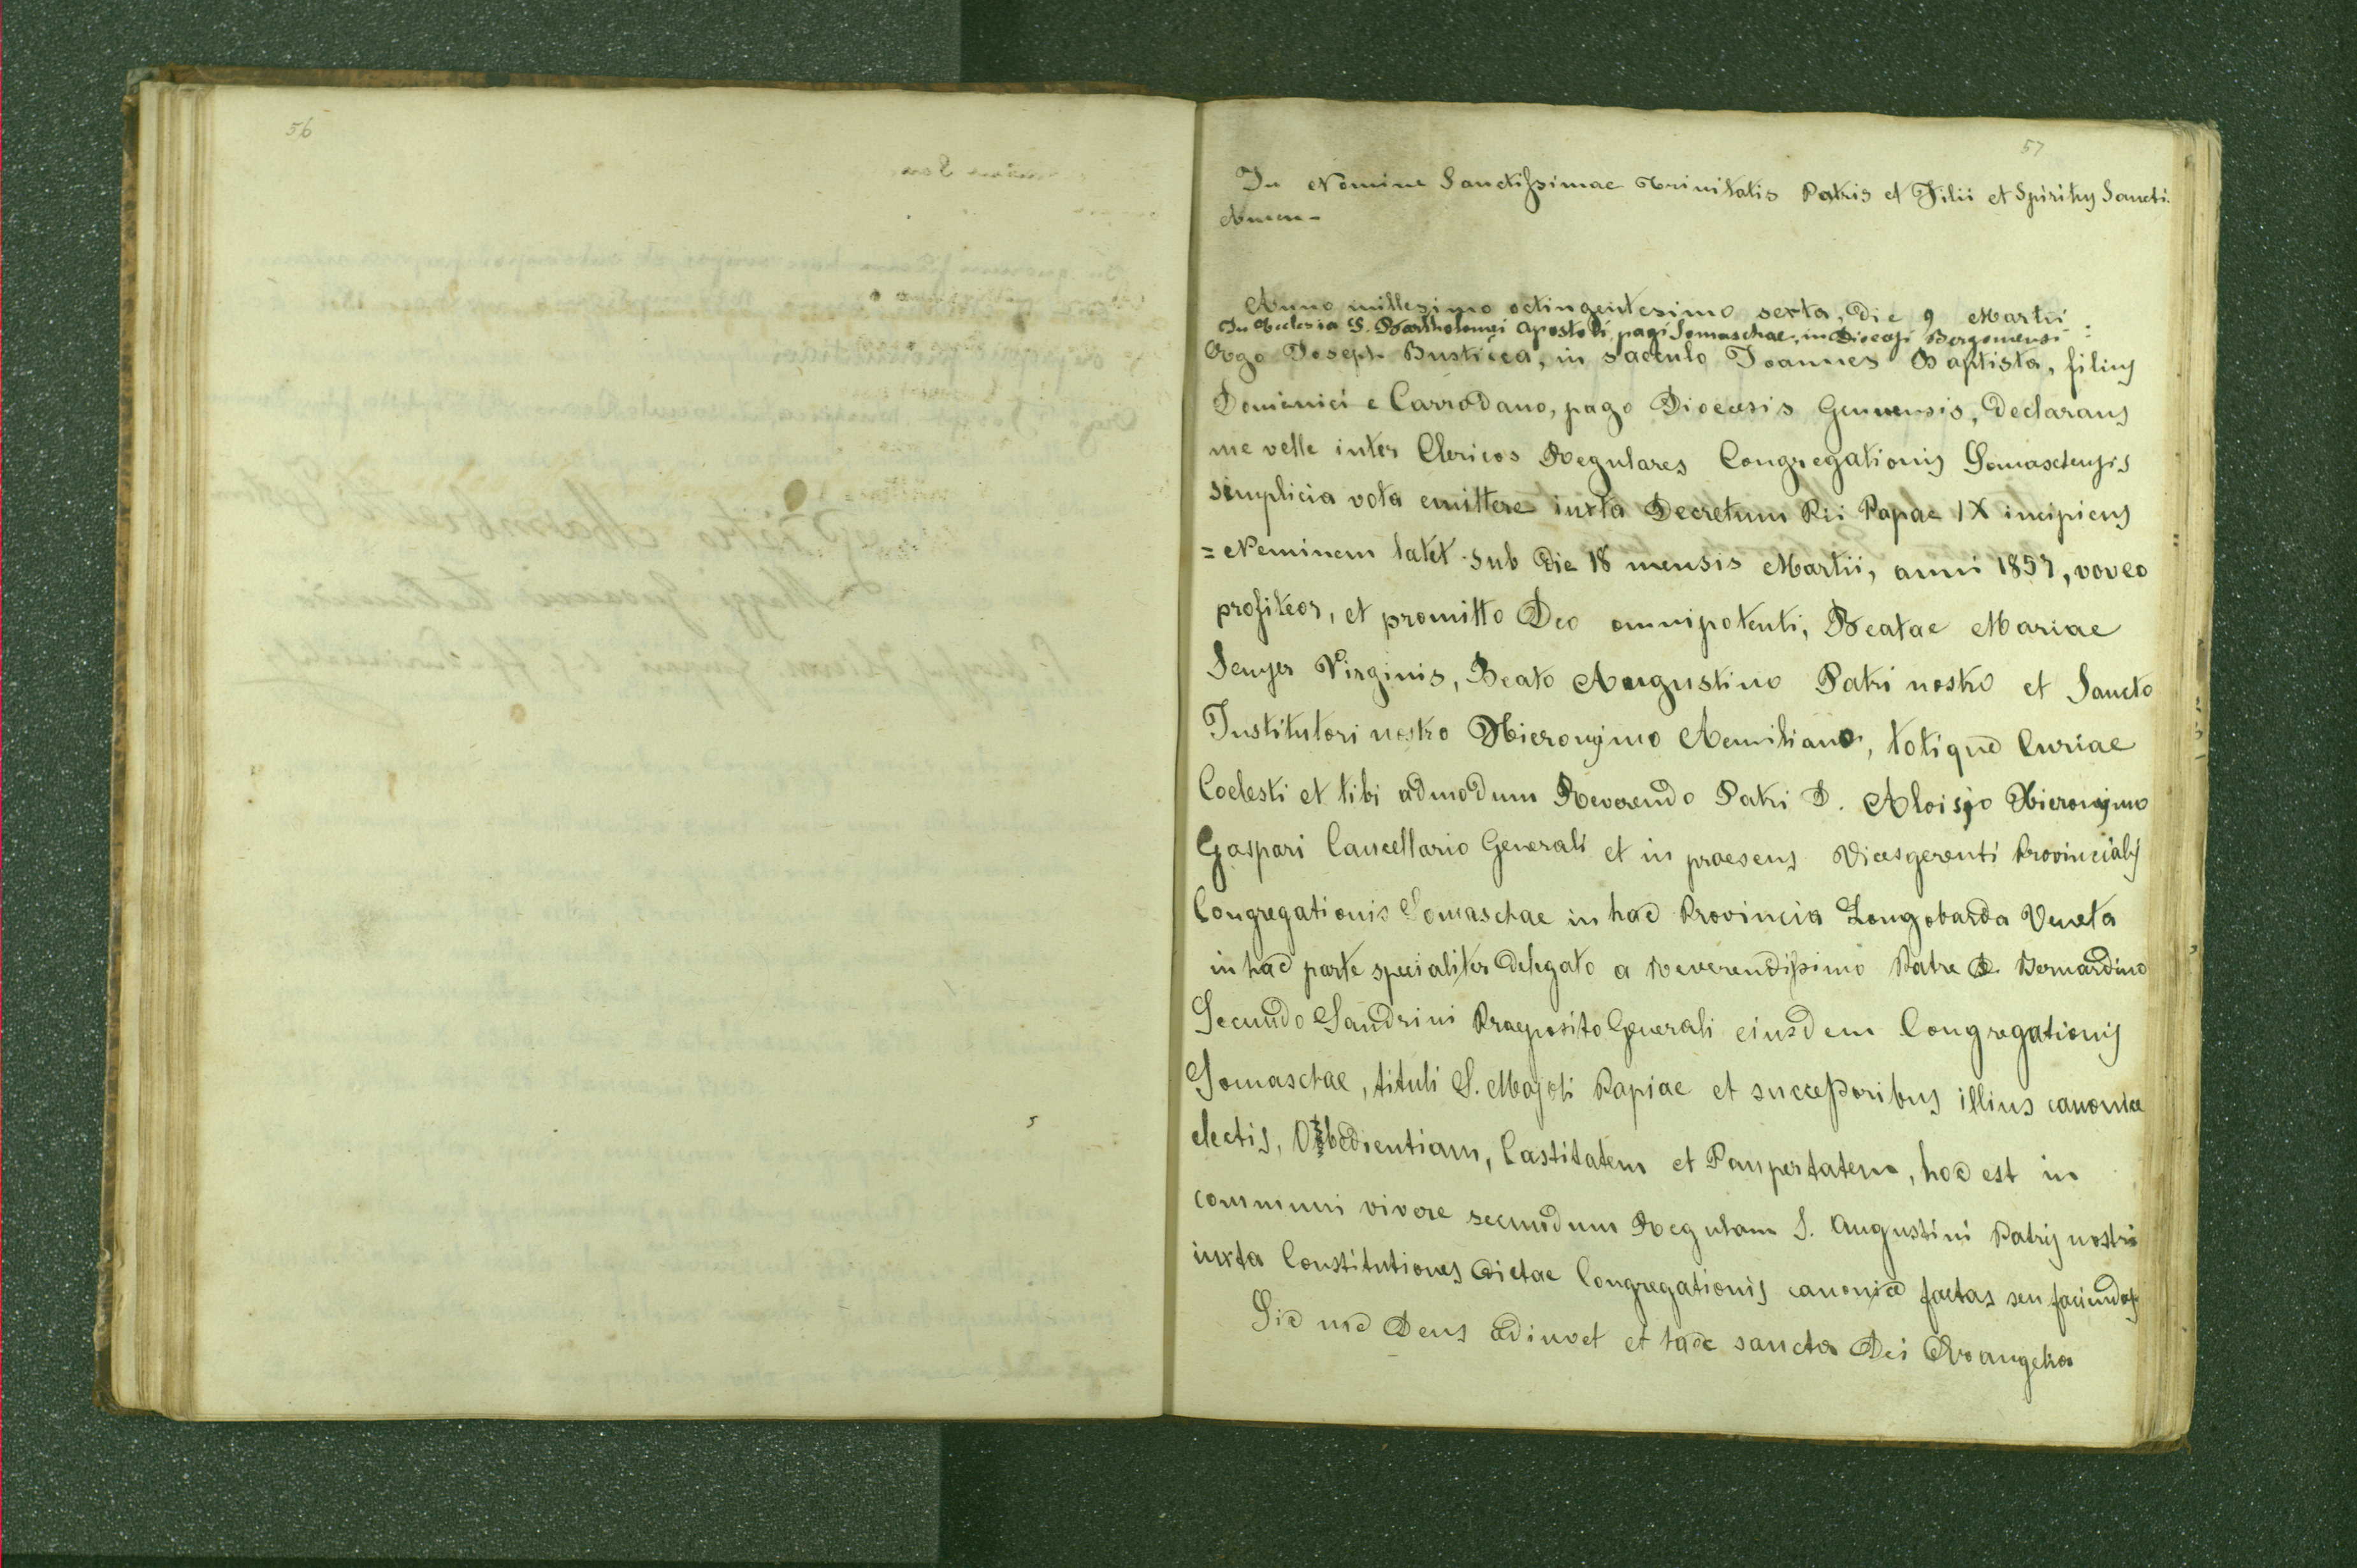 56
57
In Nomine Sanctissimae Trinitatis Patris et Filii et Spiritus Sancti.
Amen -
Anno millesimo octingentesimo sexta, die 9 Martii
In Ecclesia S. Bartholomei Apostoli pagi Somaschae, in Diocesi Bergomensi :
Ergo Joseph Busticca, in saeculo Joannes Baptista, filius
Dominici e Carrodano, pago Diocesis Genuensis, declarans
me velle inter Clericos Regulares Congregationis Somaschensis
simplicia vota emittere iuxta Decretum Pii Papae IX incipiens
= Neminem latet sub die 18 mensis Martii, anni 1857, voveo
profiteor, et promitto Deo omnipotenti, Beatae Mariae
Semper Virginis, Beato Augustino Patri nostro et Sancto
Institutori nostro Hieronymo Aemiliano, totique Curiae
Coelesti et tibi admodum Reverendo Patri D. Aloisjo Hieronymo
Gaspari Cancellario Generali et in praesens Vicesgerenti Provincialis
Congregationis Somaschae in hac Provincia Longobarda Veneta
in hac parte specialiter delegato a Reverendissimo Patre D. Bernardino
Secundo Sandrini Praeposito Generali eiusdem Congregationis
Somaschae, tituli S. Majoli Papiae et successoribus illius canonice
electis, Obedientiam, Castitatem et Paupertatem, hoc est in
communi vivere secundum Regulam S. Augustini Patris nostri
iuxta Constitutiones dictae Congregationis canonice factas seu faciendas
Sic me Deus adiuvet et haec sancta Dei Evangelia